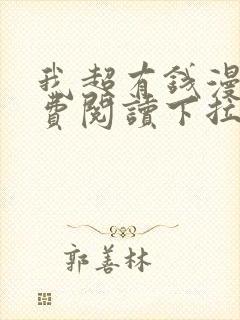 我超有錢漫
費閱讀下拉
郭善林